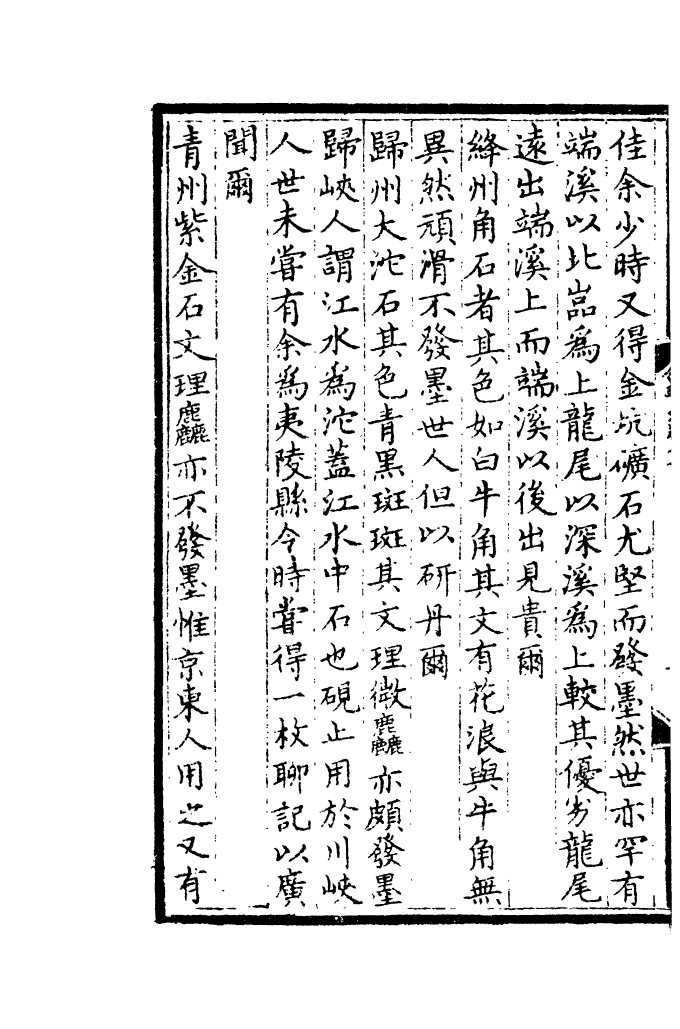 佳余少時又得金坑礦石尤堅而發墨然世亦罕有
端溪以北嵓爲上龍尾以深溪爲上較其優劣龍尾
遠出端溪上而端溪以後出見貴爾
絳州角石者其色如白牛角其文有花浪與牛角無
異然頑滑不發墨世人但以研丹爾
歸州大沱石其色青黑斑斑其文理微麤亦頗發墨
歸峽人謂江水爲沱蓋江水中石也硯止用於川峽
人世未甞有余爲夷陵縣令時甞得一枚聊記以廣
聞爾
青州紫金石文理麤亦不發墨惟京東人用之又有